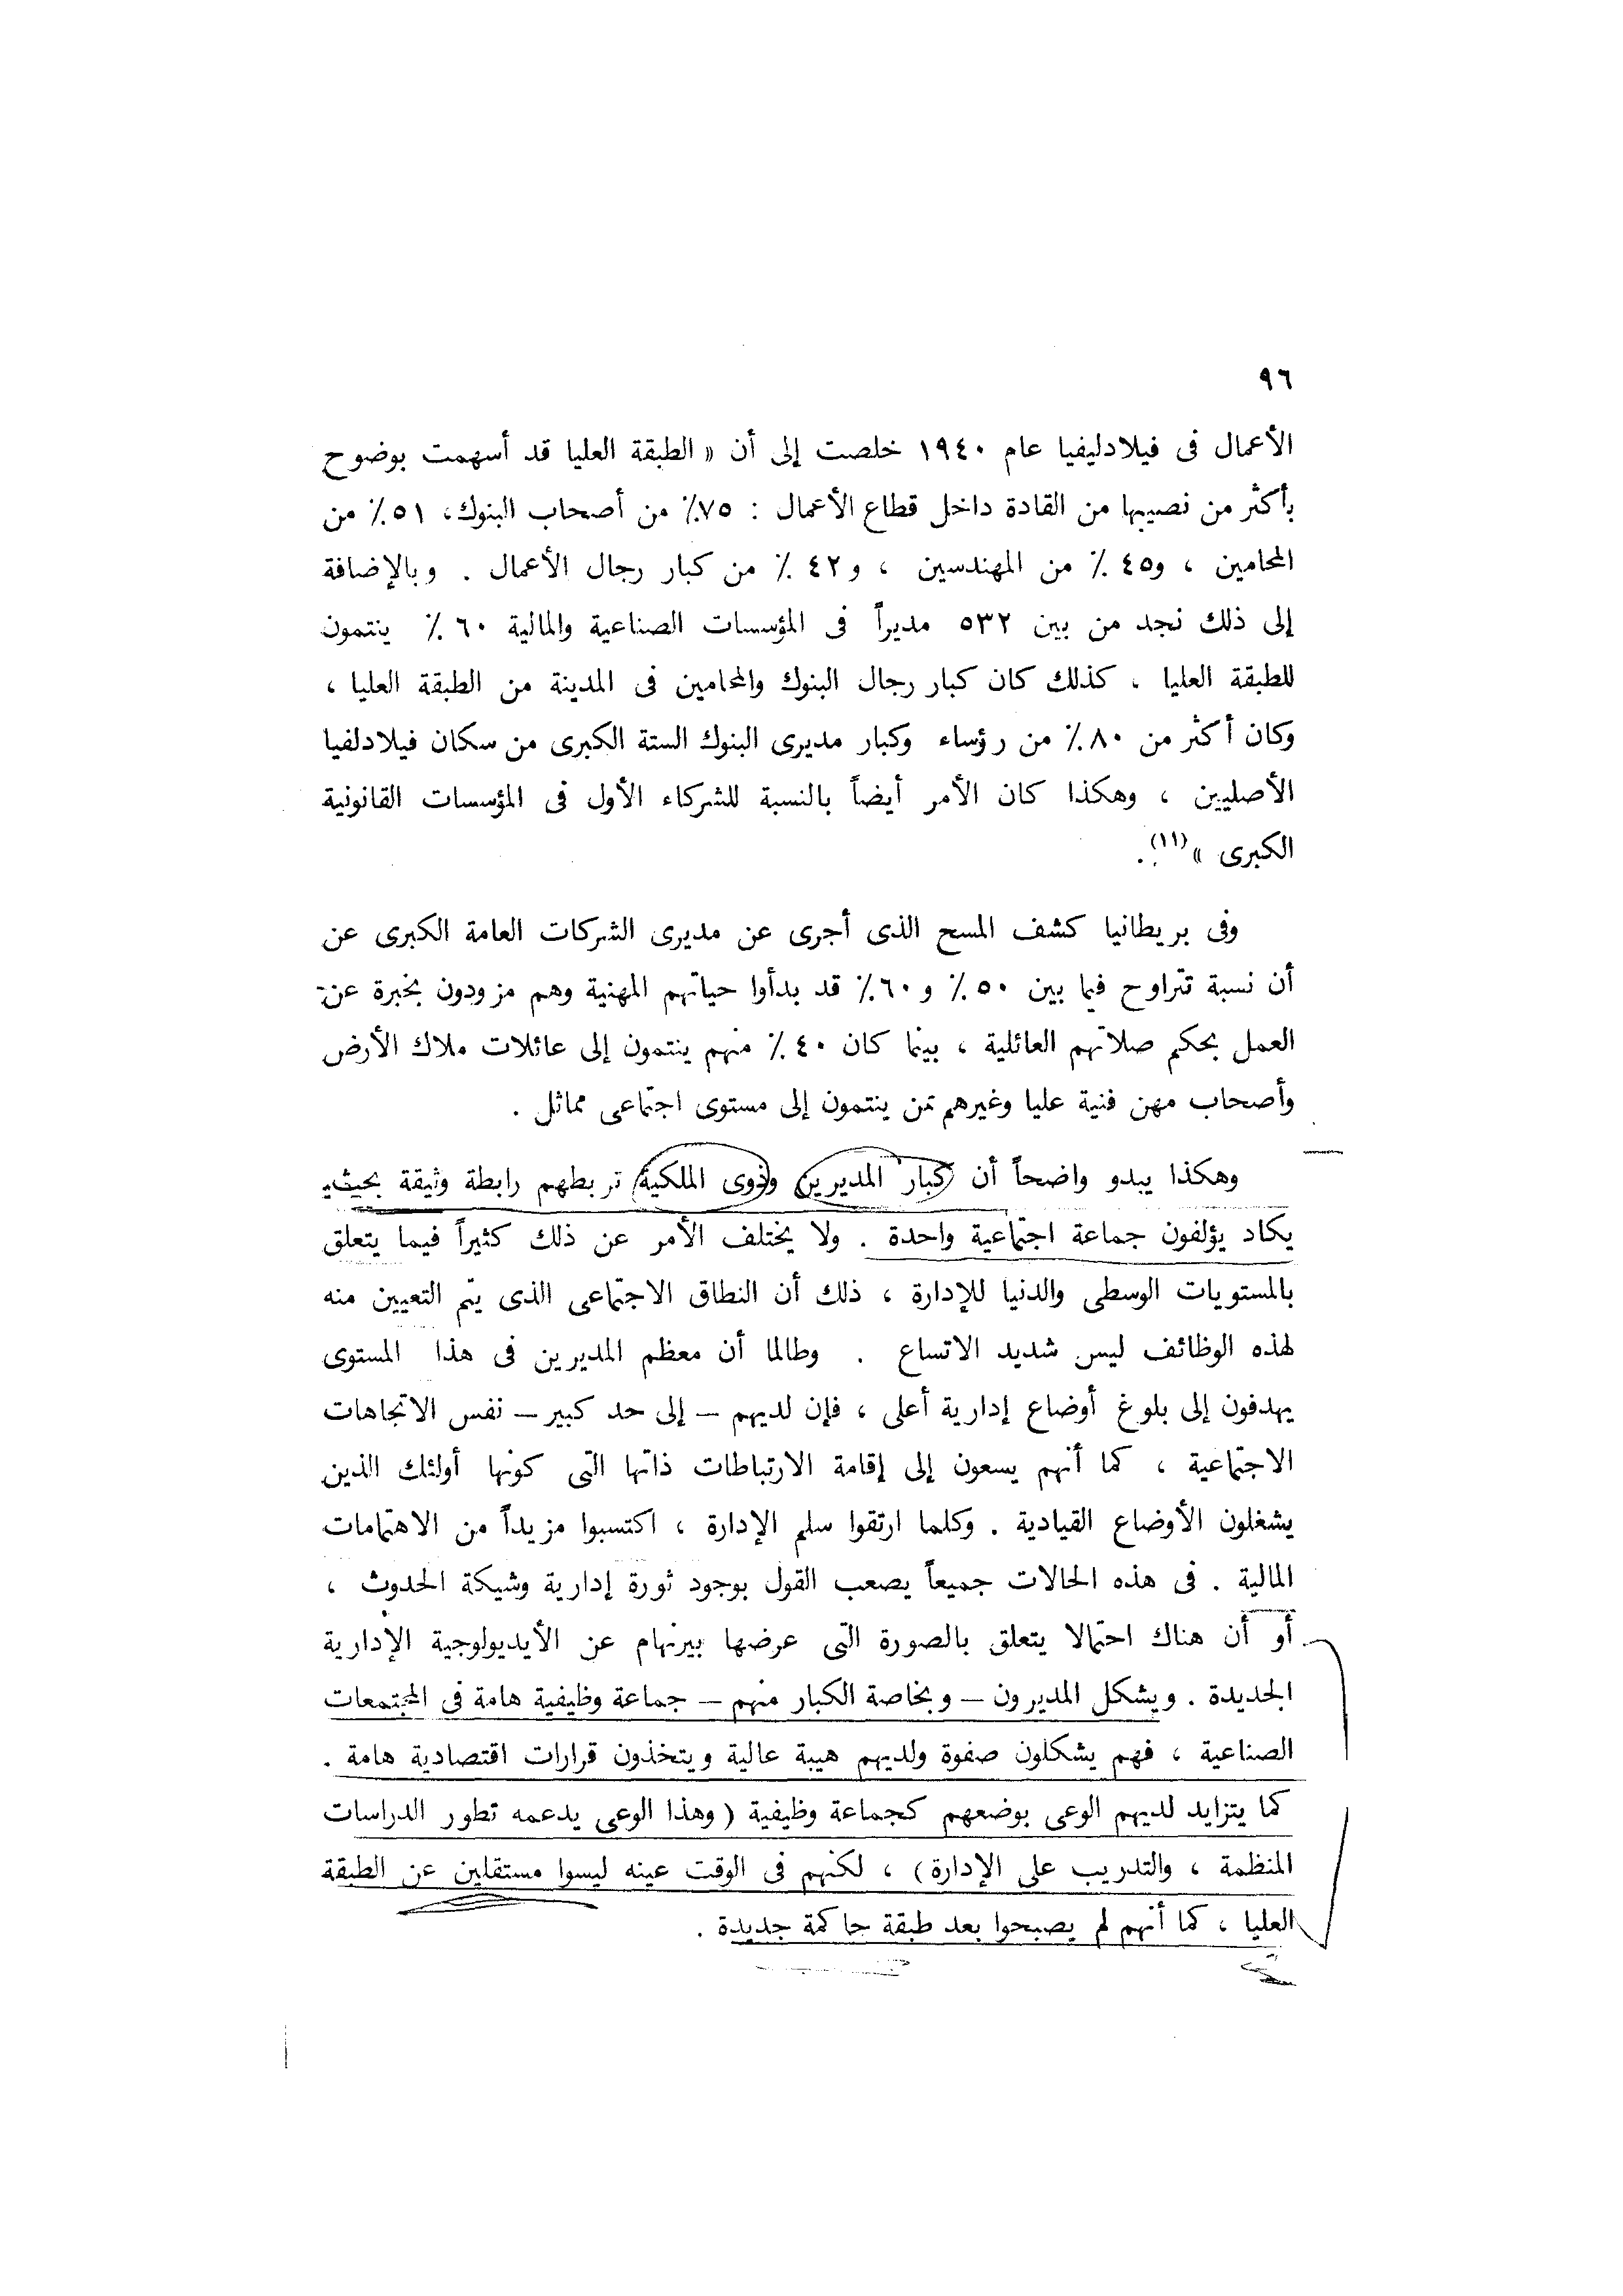 ٩٦
الأعمال فى فيلادليفيا عام ١٩٤٠ خلصت إلى أن « الطبقة العليا قد أسهمت بوضوح
بأكثر من نصيبها من القادة داخل قطاع الأعمال : ٧٥٪ من أصحاب البنوك، ٥١٪ من
المحامين ، و٤٥ ٪ من المهندسين ، و٤٢ ٪ من كبار رجال الأعمال . وبالإضافة
إلى ذلك نجد من بين ٥٣٢ مديراً فى المؤسسات الصناعية والمالية ٦٠ ٪ ينتمون
للطبقة العليا ، كذلك كان كبار رجال البنوك والمحامين فى المدينة من الطبقة العليا ،
وكان أكثر من ٨٠٪ من رؤساء وكبار مديرى البنوك الستة الكبرى من سكان فيلادلفيا
الأصليين ، وهكذا كان الأمر أيضاً بالنسبة للشركاء الأول فى المؤسسات القانونية
الكبرى »(١١).
وفى بريطانيا كشف المسح الذى أجرى عن مديرى الشركات العامة الكبرى عن
أن نسبة تتراوح فيما بين ٥٠٪ و٦٠٪ قد بدأوا حياتهم المهنية وهم مزودون بخبرة عن
العمل بحكم صلاتهم العائلية ، بينما كان ٤٠٪ منهم ينتمون إلى عائلات ملاك الأرض
وأصحاب مهن فنية عليا وغيرهم ممن ينتمون إلى مستوى اجتماعى مماثل .
وهكذا يبدو واضحاً أن كبار المديرين وذوى الملكية تربطهم رابطة وثيقة بحيث
يكاد يؤلفون جماعة اجتماعية واحدة . ولا يختلف الأمر عن ذلك كثيراً فيما يتعلق
بالمستويات الوسطى والدنيا للإدارة ، ذلك أن النطاق الاجتماعى الذى يتم التعيين منه
لهذه الوظائف ليس شديد الاتساع . وطالما أن معظم المديرين فى هذا المستوى
يهدفون إلى بلوغ أوضاع إدارية أعلى ، فإن لديهم – إلى حد كبير – نفس الاتجاهات
الاجتماعية ، كما أنهم يسعون إلى إقامة الارتباطات ذاتها التى كونها أولئك الذين
يشغلون الأوضاع القيادية . وكلما ارتقوا سلم الإدارة ، اكتسبوا مزيداً من الاهتمامات
المالية . فى هذه الحالات جميعاً يصعب القول بوجود ثورة إدارية وشيكة الحدوث ،
أو أن هناك احتمالا يتعلق بالصورة التى عرضها بيرنهام عن الأيديولوجية الإدارية
الجديدة . ويشكل المديرون – وبخاصة الكبار منهم – جماعة وظيفية هامة فى المجتمعات
الصناعية ، فهم يشكلون صفوة ولديهم هيبة عالية ويتخذون قرارات اقتصادية هامة .
كما يتزايد لديهم الوعى بوضعهم كجماعة وظيفية ( وهذا الوعى يدعمه تطور الدراسات
المنظمة ، والتدريب على الإدارة ) ، لكنهم فى الوقت عينه ليسوا مستقلين عن الطبقة
العليا ، كما أنهم لم يصبحوا بعد طبقة حاكمة جديدة .